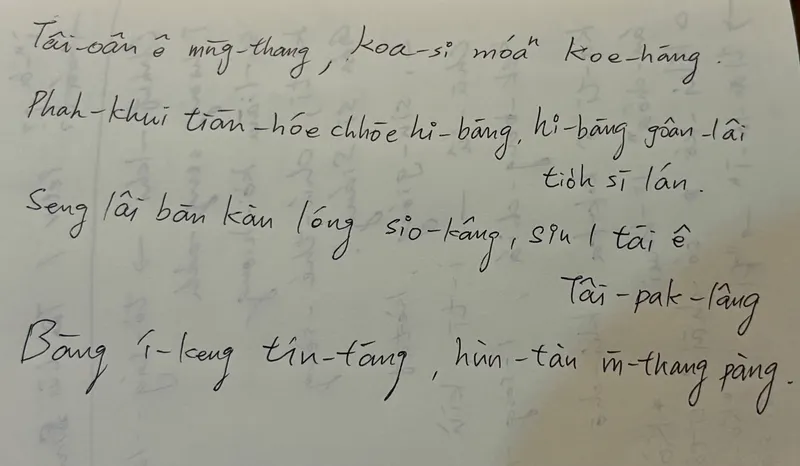 Tâi-oân ê mn̂g-thang, koa-si móaⁿ koe-hāng.
Phah-khui tiān-hóe chhōe hi-bāng, hi-bāng goân-lâi
tio̍h sī lán.
Seng lâi bān kàn lóng sio-kâng, sin 1 tāi ê
Tâi-pak-lâng
Bāng í-keng tín-tāng, hùn-tàu m̄-thang pàng.